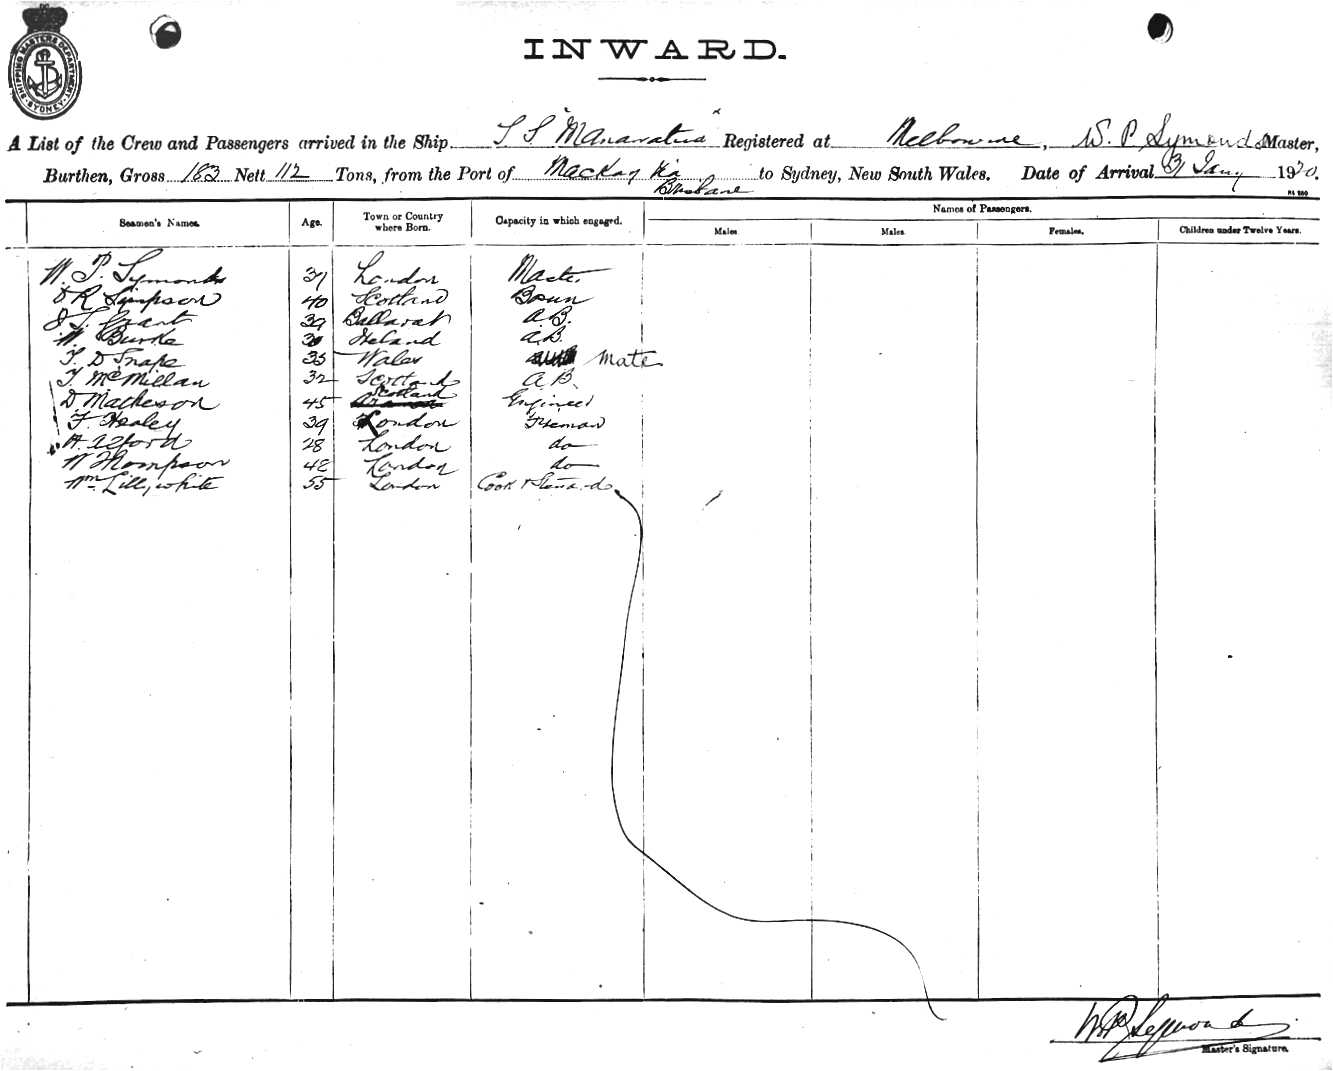 SHIPPING MASTER'S DEPARTMENT · SYDNEY ·
INWARD.
A List of the Crew and Passengers arrived in the Ship S S "Manawatu" Registered at Melbourne, W. P. Symonds Master,
Burthen, Gross 183 Nett 112 Tons, from the Port of Mackay Via Brisbane to Sydney, New South Wales. Date of Arrival 31 Jany 1920.
Seamen's Names. Age. Town or Country where Born. Capacity in which engaged. Names of Passengers.
Males. Males. Females. Children under Twelve Years.
W. P. Symonds 37 London Master
R Simpson 40 Scotland Bosun
Grant 39 Ballarat A.B.
W. Burke Ireland A.B.
T. D Snape 35 Wales Mate
T. McMillan 32 Scotland A.B.
D Matheson 45 Scotland Engineer
F. Healey 39 London Fireman
A. Alford 28 London do
W Thompson 48 London do
Wm Lillywhite 55 London Cook & Steward
W P Symonds
Master's Signature.